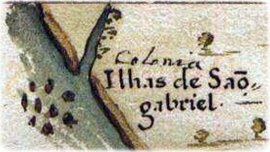 Colonia
Ilhas de Saõ-
gabriel.